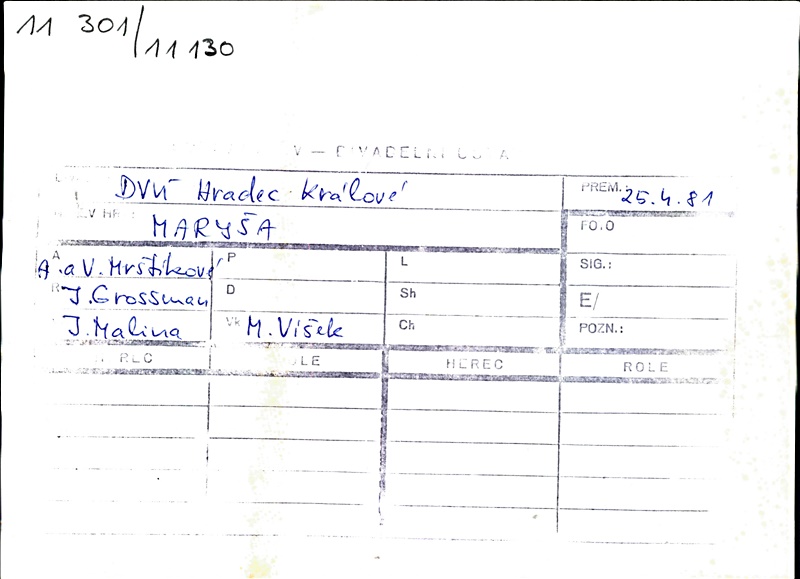 11 301/11 130
V — DIVADELNÍ
DVÚ Hradec Králové
PREM.: 25.4.81
MARYŠA
FOTO
A A. a V. Mrštíkové
P
L
SIG.:
R J. Grossman
D
Sh
E/
J. Malina
Vk M. Víšek
Ch
POZN.:
HEREC
ROLE